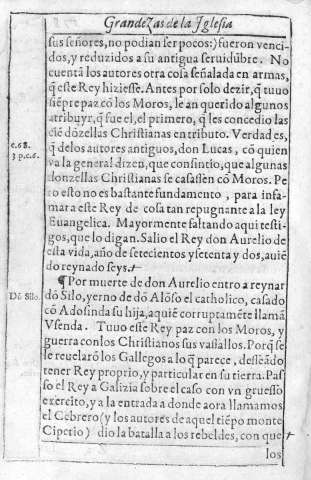 Grandezas de la Iglesia
sus señores, no podian ser pocos:) fueron venci-
dos, y reduzidos a su antigua seruidũbre. No
cuentã los autores otra cosa señalada en armas,
q̃ este Rey hiziesse. Antes por solo dezir, q̃ tuuo
siẽpre paz cõ los Moros, le an querido algunos
atribuyr, q̃ fue el, el primero, q̃ les concedio las
ciẽ dõzellas Christianas en tributo. Verdad es,
c.68.
q̃ delos autores antiguos, don Lucas, cõ quien
3 p.c.6.
va la general dizen, que consintio, que algunas
donzellas Christianas se casassen cõ Moros. Pe
ro esto no es bastante fundamento, para infa-
mar a este Rey de cosa tan repugnante a la ley
Euangelica. Mayormente faltando aqui testi-
gos, que lo digan. Salio el Rey don Aurelio de
esta vida, año de setecientos y setenta y dos, auiẽ
do reynado seys.
¶ Por muerte de don Aurelio entro a reynar
Dõ Silo.
dõ Silo, yerno de dõ Alõso el catholico, casado
cõ Adosinda su hija, a quiẽ corruptamẽte llamã
Vsenda. Tuuo este Rey paz con los Moros, y
guerra con los Christianos sus vassallos. Porq̃ se
le reuelarõ los Gallegos a lo q̃ parece, desseãdo
tener Rey proprio, y particular en su tierra. Pas
so el Rey a Galizia sobre el caso con vn gruesso
exercito, y a la entrada a donde aora llamamos
el Cebrero (y los autores de aquel tiẽpo monte
Ciperio) dio la batalla a los rebeldes, con que
los